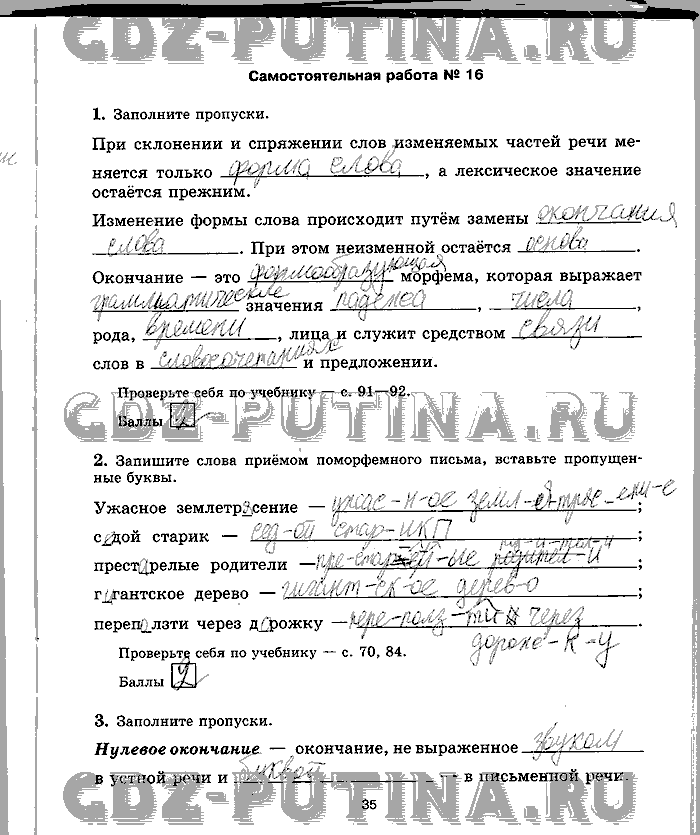 GDZ-PUTINA.RU
Самостоятельная работа № 16
1. Заполните пропуски.
При склонении и спряжении слов изменяемых частей речи ме-
няется только форма слова, а лексическое значение
остаётся прежним.
Изменение формы слова происходит путём замены окончания
слова. При этом неизменной остаётся основа.
Окончание — это формообразующая морфема, которая выражает
грамматические значения падежа, числа,
рода, времени, лица и служит средством связи
слов в словосочетаниях и предложении.
Проверьте себя по учебнику — с. 91—92.
GDZ-PUTINA.RU
Баллы
2. Запишите слова приёмом поморфемного письма, вставьте пропущен-
ные буквы.
Ужасное землетрясение — ужас-н-ое земл-е-тряс-ени-е;
седой старик — сед-ой стар-ик;
престарелые родители — пре-стар-ел-ые родител-и;
гигантское дерево — гигант-ск-ое дерев-о;
переползти через дорожку — пере-полз-ти через
дорож-к-у
Проверьте себя по учебнику — с. 70, 84.
Баллы
3. Заполните пропуски.
Нулевое окончание — окончание, не выраженное звуком
в устной речи и буквой — в письменной речи.
GDZ-PUTINA.RU
35